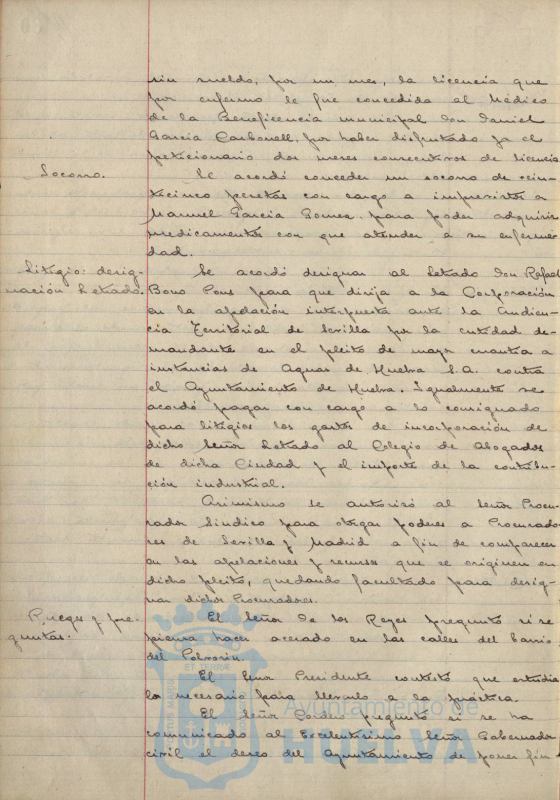 sin sueldo, por un mes, la licencia que
por enfermo le fue concedida al Médico
de la Beneficencia municipal don Daniel
García Carbonell, por haber disfrutado ya el
peticionario dos meses consecutivos de licencia
Socorro.
Se acordó conceder un socorro de vein-
ticinco pesetas con cargo a imprevistos a
Manuel García Gomez para poder adquirir
medicamentos con que atender a su enferme-
dad.
Litigio: desig-
nación Letrado.
Se acordó designar al Letrado don Rafael
Bono Pons para que dirija a la Corporación
en la apelación interpuesta ante la Audien-
cia Territorial de Sevilla por la entidad de-
mandante en el pleito de mayor cuantía a
instancias de Aguas de Huelva S.A. contra
el Ayuntamiento de Huelva. Igualmente se
acordó pagar con cargo a lo consignado
para litigios los gastos de incorporación de
dicho Señor Letrado al Colegio de Abogados
de dicha Ciudad y el importe de la contribu-
ción industrial.
Asimismo se autorizó al Señor Procu-
rador Síndico para otorgar poderes a Procurado-
res de Sevilla y Madrid a fin de comparecer
en las apelaciones y recursos que se originen en
dicho pleito, quedando facultado para desig-
nar dichos Procuradores.
Ruegos y pre-
guntas.
El Señor de los Reyes preguntó si se
piensa hacer acerado en las calles del barrio
del Polvorín.
El Señor Presidente contestó que estudia
lo necesario para llevarlo a la práctica.
El Señor Cordero preguntó si se ha
comunicado al Excelentísimo Señor Gobernador
civil el deseo del Ayuntamiento de poner fin
Ayuntamiento de
HUELVA